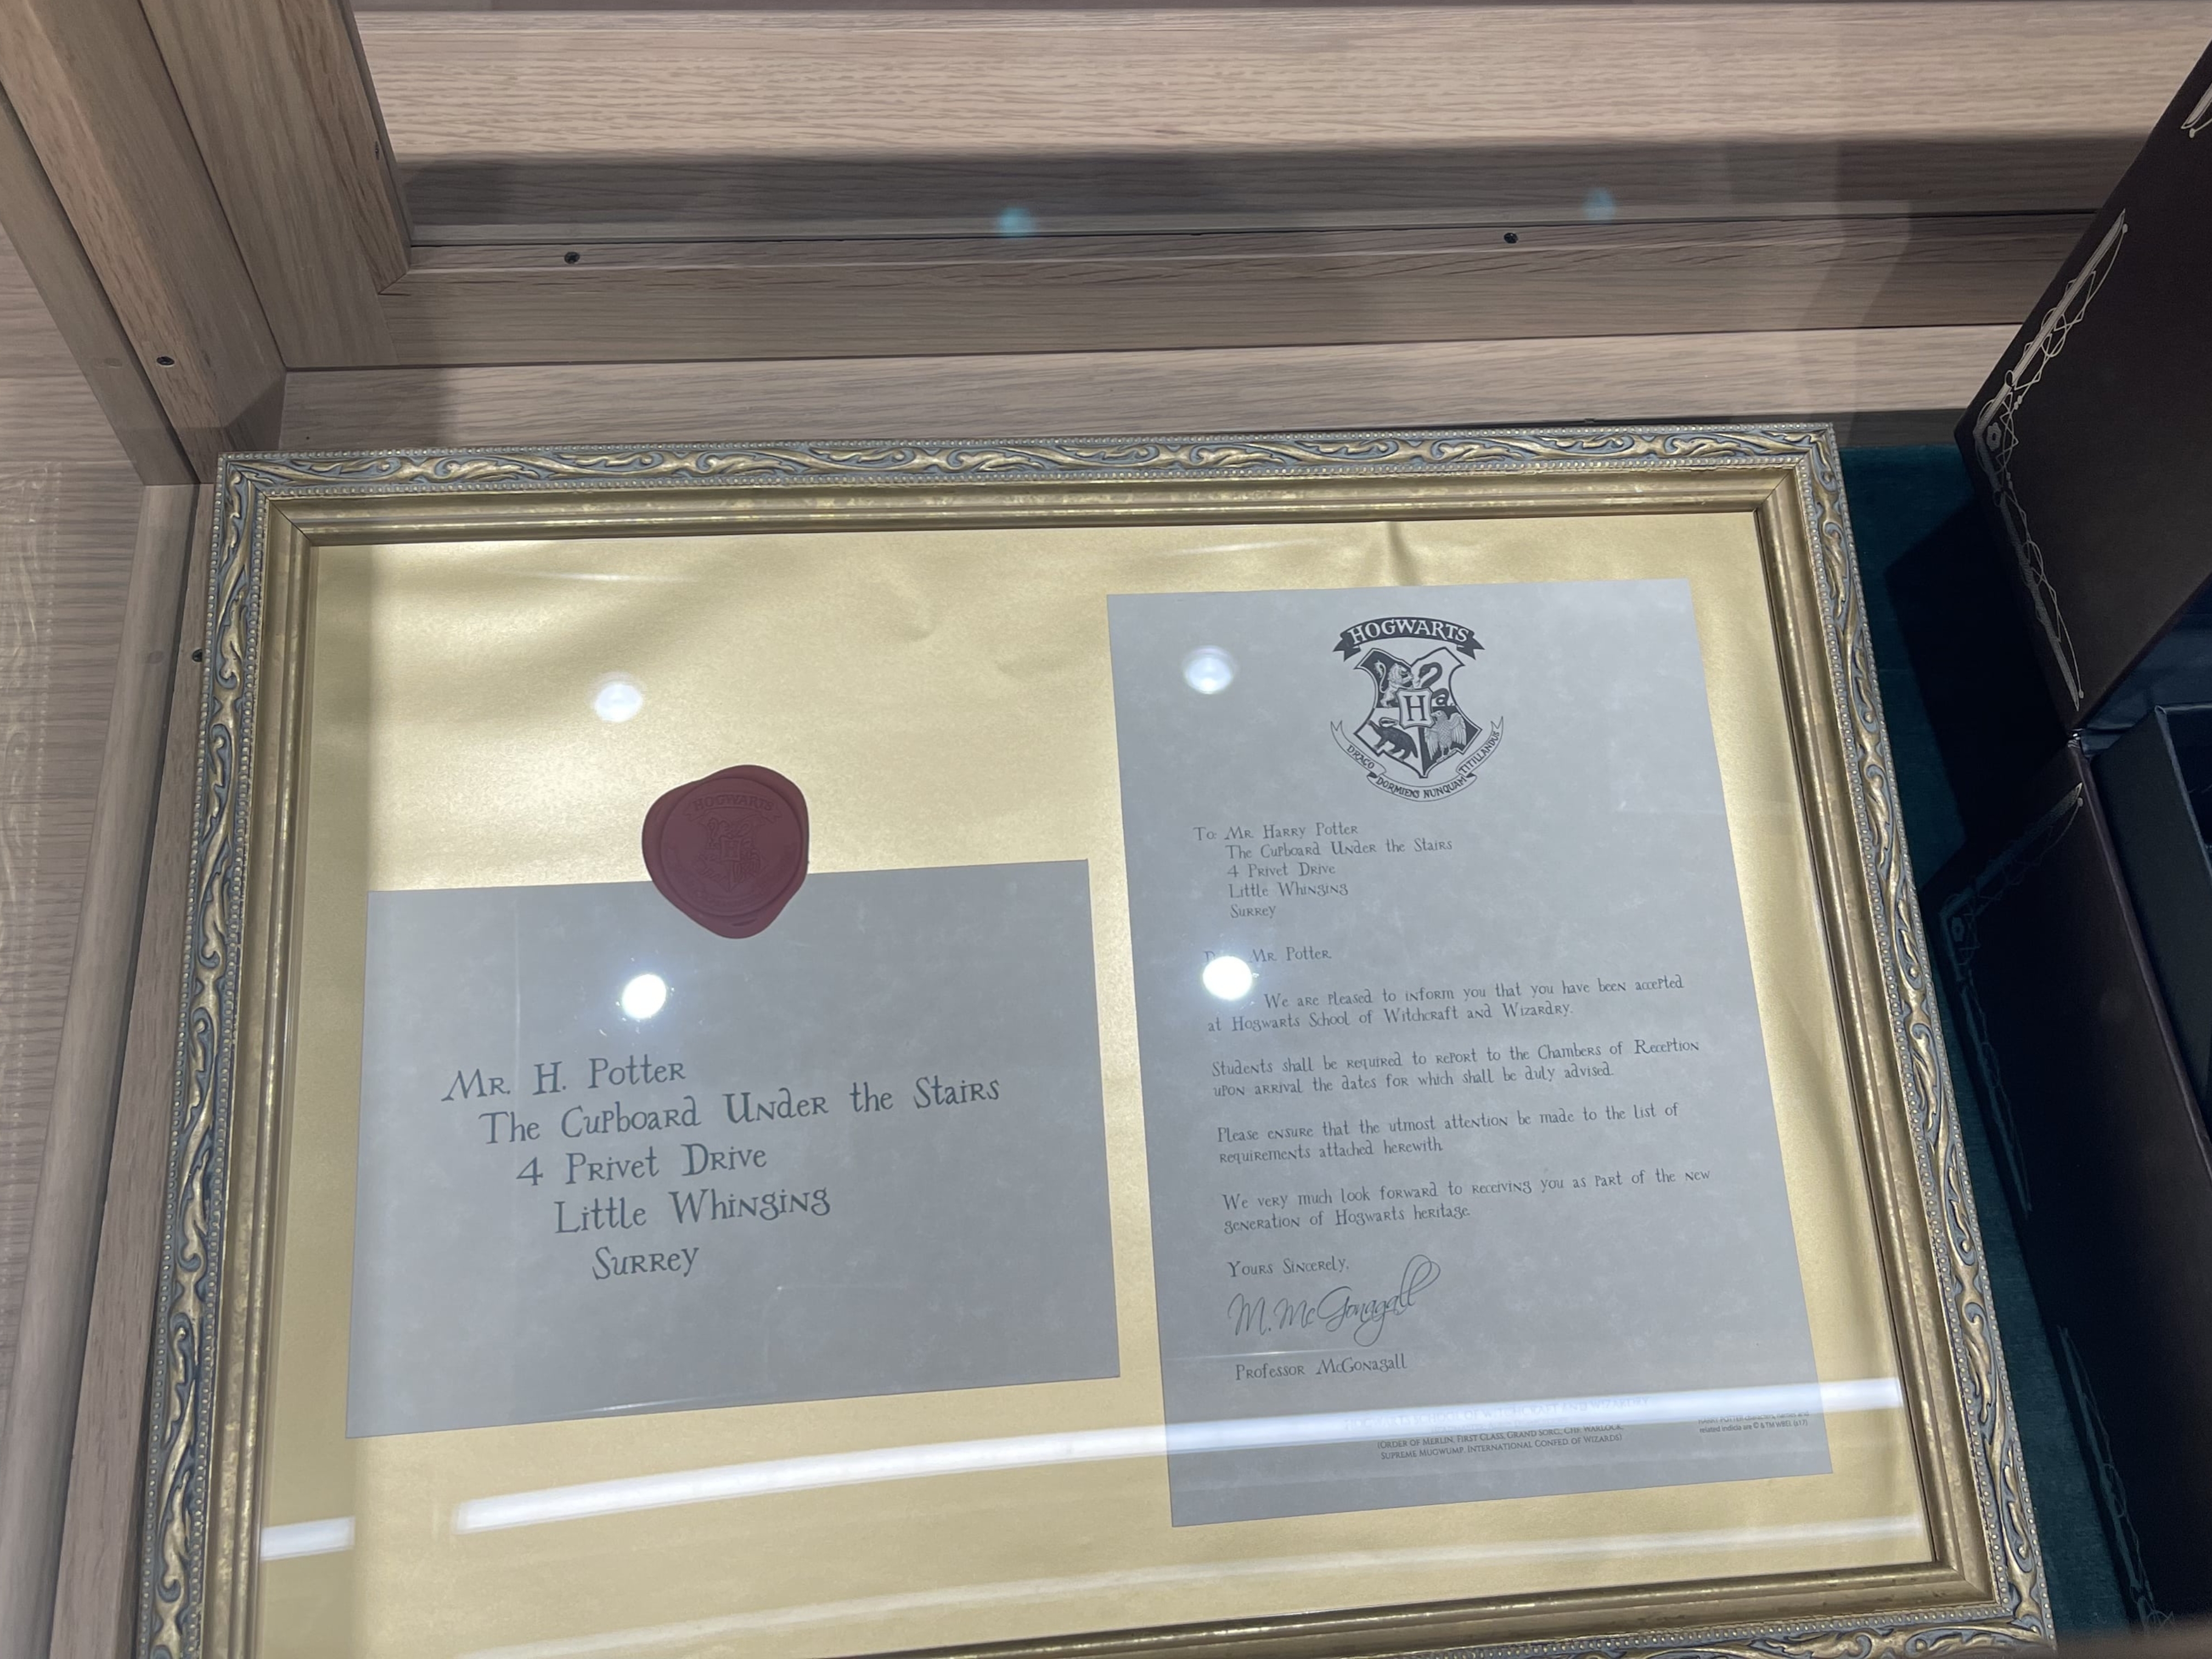 HOGWARTS
Mr. H. Potter
The Cupboard Under the Stairs
4 Privet Drive
Little Whinging
Surrey
HOGWARTS
H
DRACO DORMIENS NUNQUAM TITILLANDUS
To: Mr. Harry Potter
The Cupboard Under the Stairs
4 Privet Drive
Little Whinging
Surrey
Mr. Potter
We are pleased to inform you that you have been accepted
at Hogwarts School of Witchcraft and Wizardry.
Students shall be required to report to the Chambers of Reception
upon arrival the dates for which shall be duly advised.
Please ensure that the utmost attention be made to the list of
requirements attached herewith.
We very much look forward to receiving you as part of the new
generation of Hogwarts heritage.
Yours Sincerely,
M. McGonagall
Professor McGonagall
HOGWARTS SCHOOL OF WITCHCRAFT AND WIZARDRY
(Order of Merlin, First Class, Grand Sorc., Chf. Warlock,
Supreme Mugwump, International Confed. of Wizards)
HARRY POTTER characters, names, and
related indicia are © & TM WBEI. (s17)